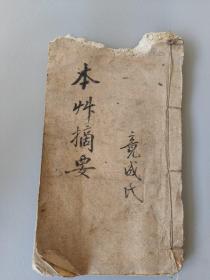 本艸摘要
竟成氏